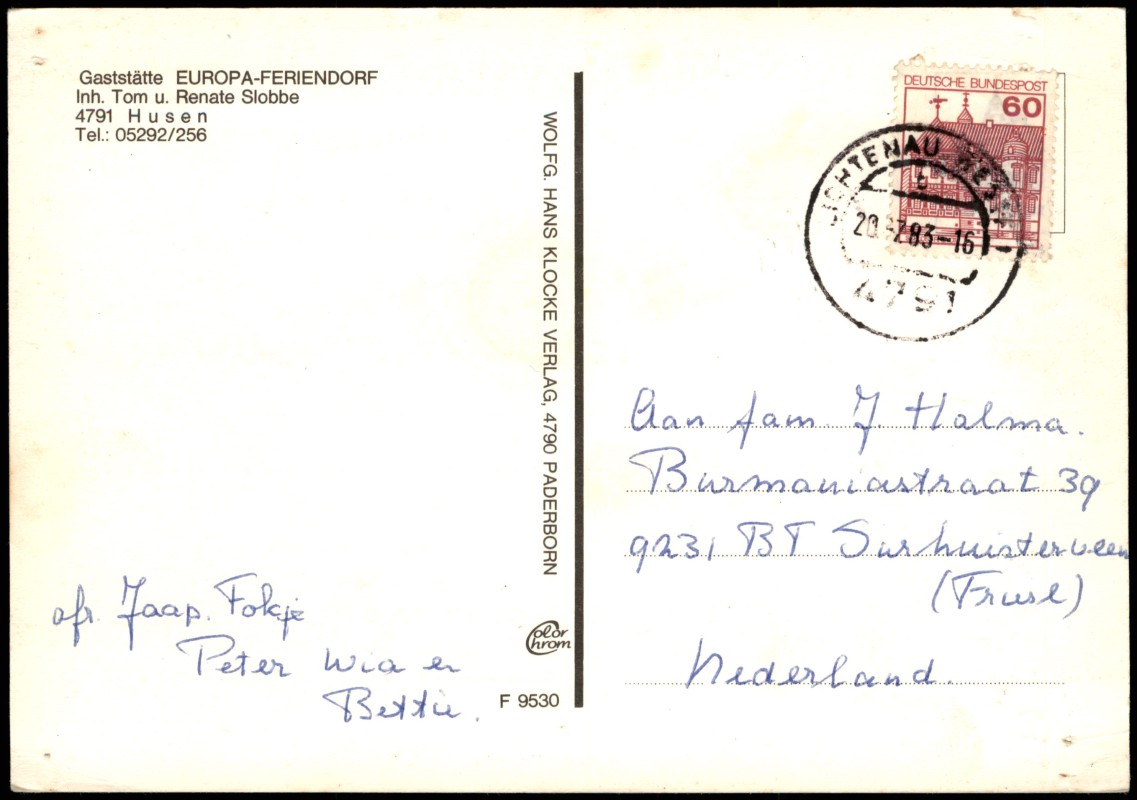 Gaststätte EUROPA-FERIENDORF
Inh. Tom u. Renate Slobbe
4791 Husen
Tel.: 05292/256
WOLFG. HANS KLOCKE VERLAG, 4790 PADERBORN
Color Chrom
F 9530
afz. Jaap. Fokje
Peter Wia en
Bettie.
DEUTSCHE BUNDESPOST
60
LICHTENAU WESTF
20. 83-16
4791
Aan fam J Halma.
Burmaniastraat 39
9231 BT Surhuisterveen
(Friesl)
Nederland.